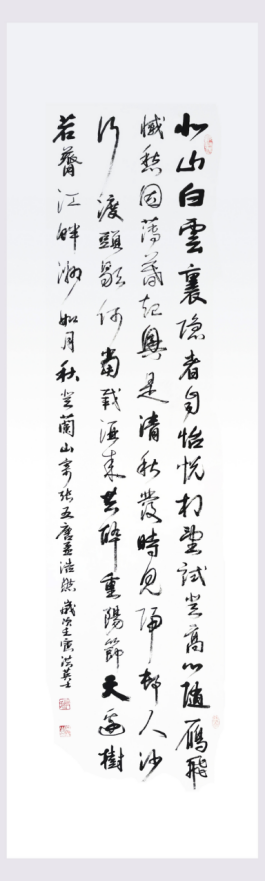 北山白雲裏隐者自怡悦相望試登高心随鴈飛
滅愁因薄暮起興是清秋發時見歸村人沙
行渡頭歇何當載酒来共醉重陽節天邊樹
若薺江畔洲如月秋登蘭山寄张五唐孟浩然歲次壬寅